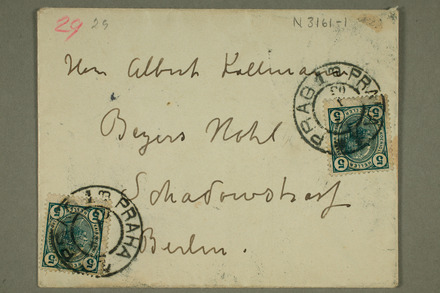 29 29 N 3161-1
Herr Albert Kollmann
Beyers Hotel
Schadowstrasse
Berlin.
PRAG PRAHA
5 5
5 5
PRAHA
5 5
5 5